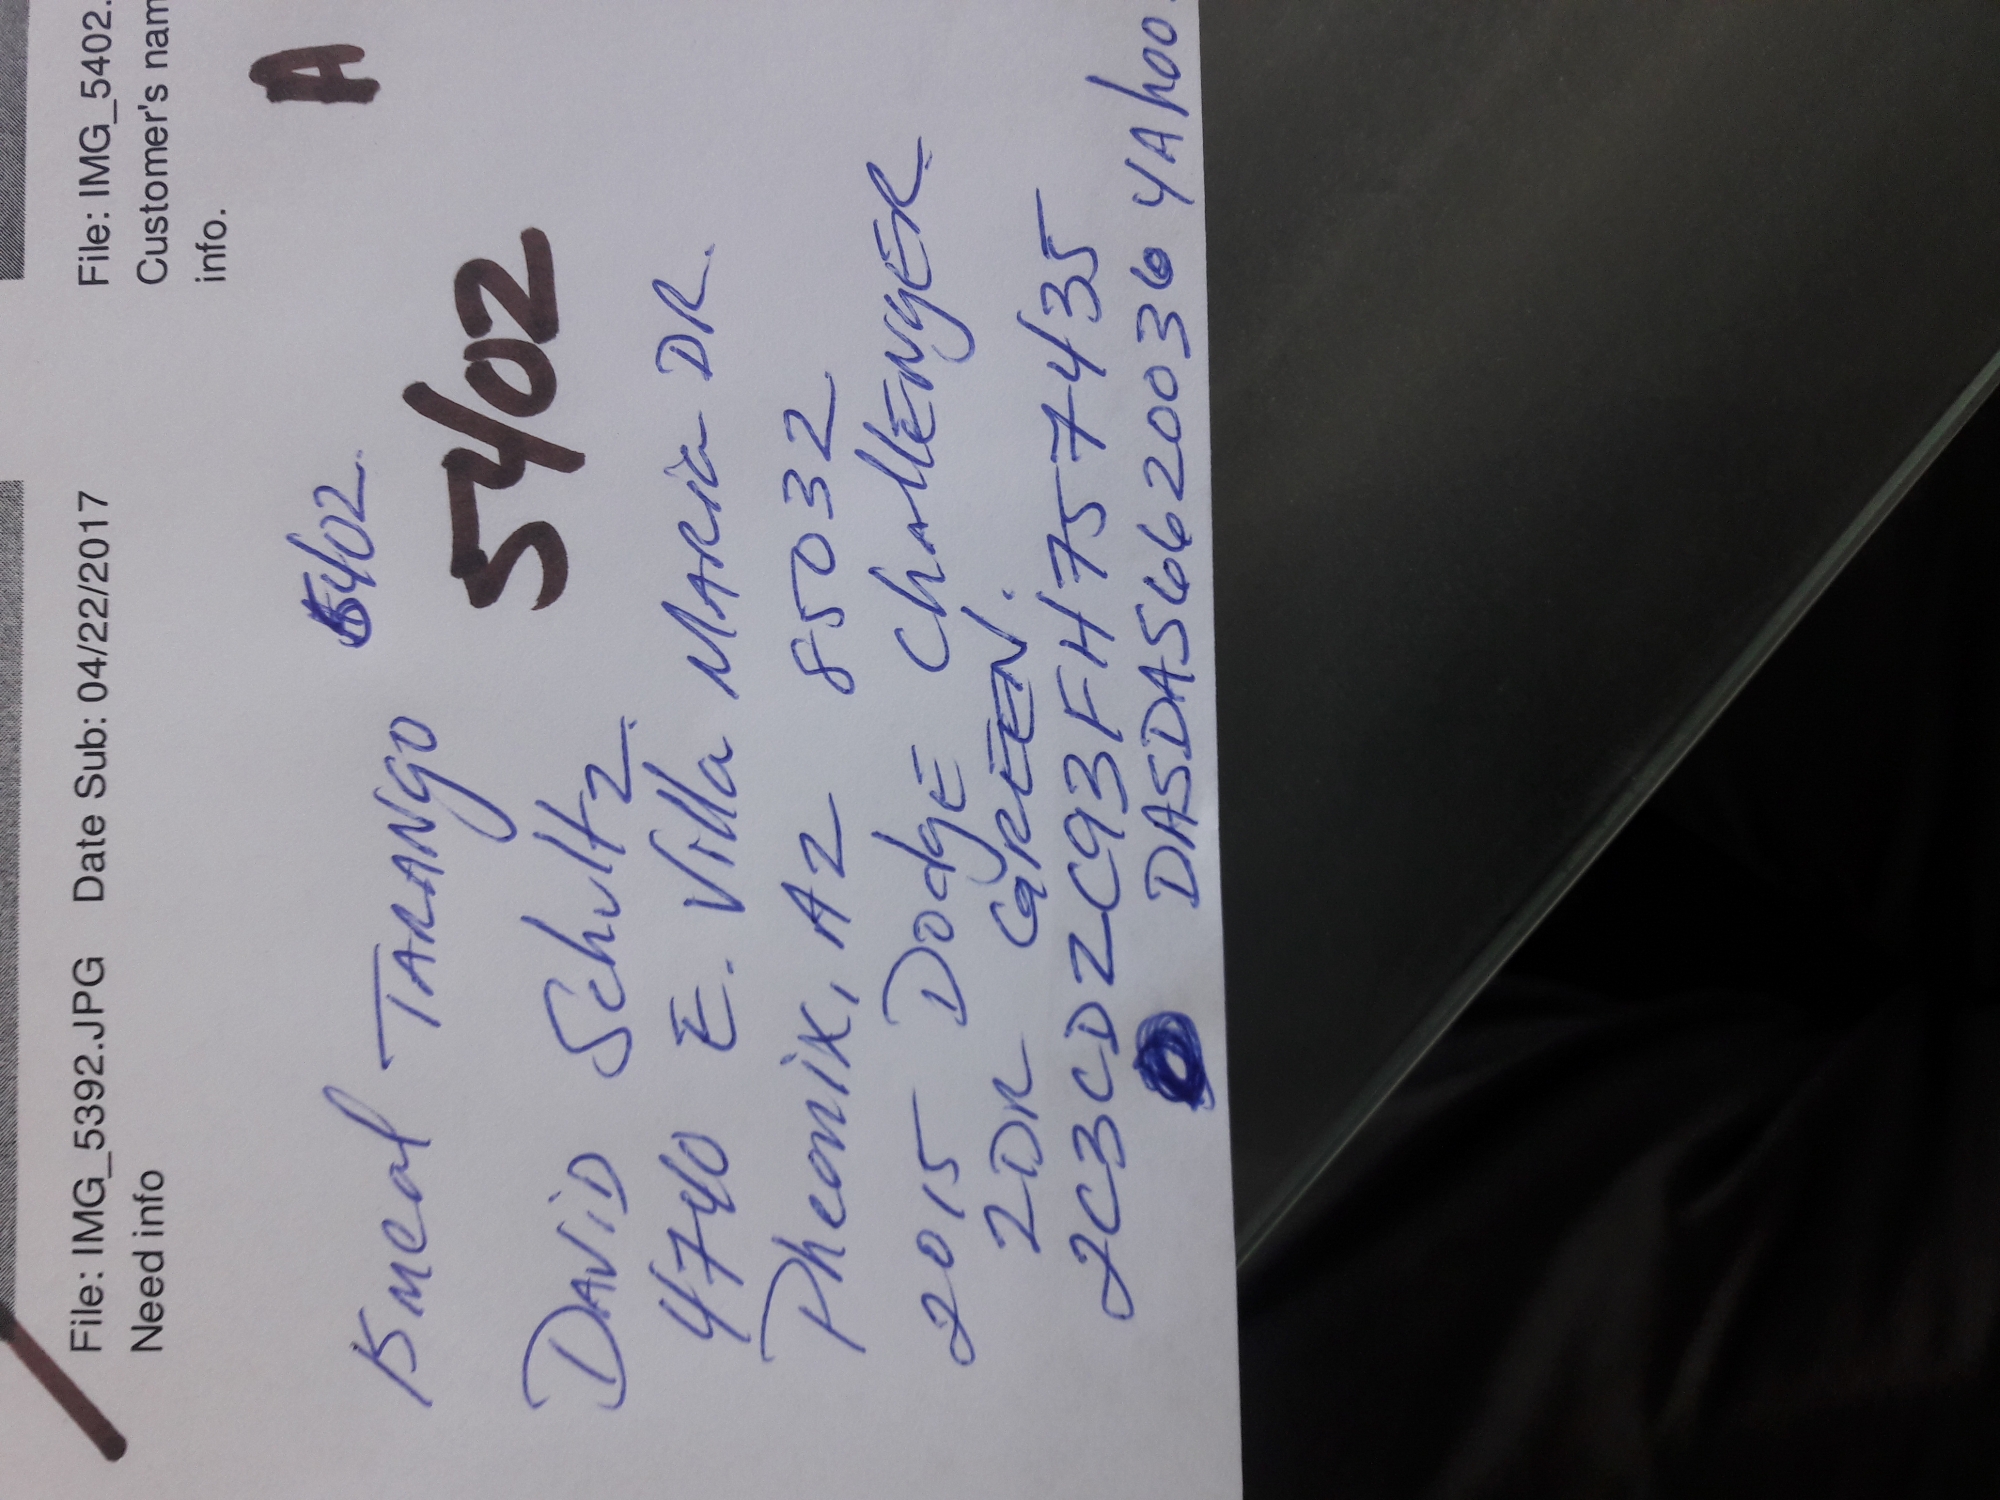 File: IMG_5392.JPG Date Sub: 04/22/2017
Need info
File: IMG_5402.
Customer's nam
info.
A
5402.
TARANGO
5402
DAViD Schultz
4740 E. Villa MARia DR.
Pheonix, AZ 85032
2015 Dodge ChallENgER
2DR GREEN.
2C3CDZC93FH757435
DASDAS66200364Ahoo.